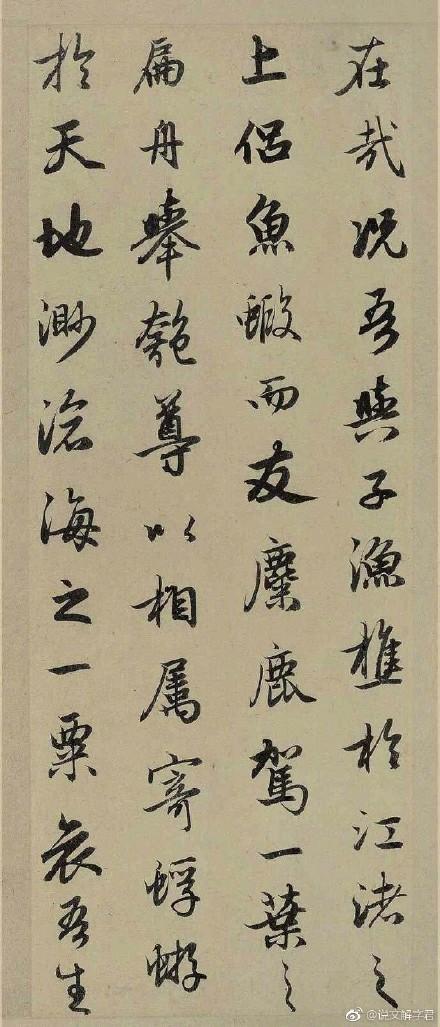 在哉况吾與子漁樵於江渚之
上侣魚蝦而友麋鹿駕一葉之
扁舟舉匏尊以相属寄蜉蝣
於天地渺滄海之一粟哀吾生
@说文解字君